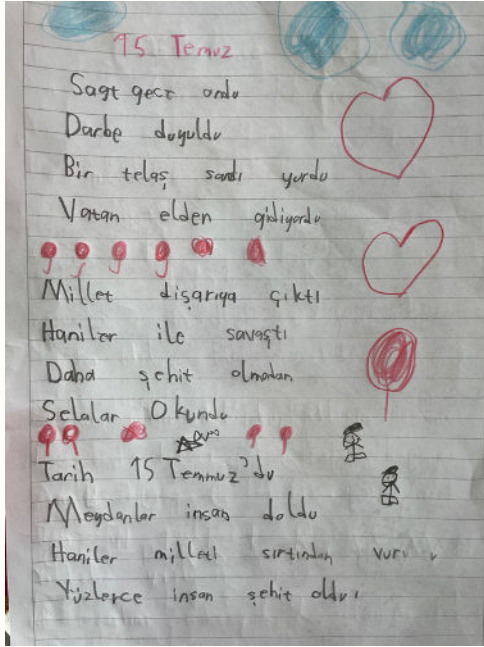 15 Temuz
Saat gece ondu
Darbe duyuldu
Bir telaş sardı yurdu
Vatan elden gidiyordu
Millet dışarıya çıktı
Hainler ile savaştı
Daha şehit olmadan
Selalar Okundu
Tarih 15 Temmuz'du
Meydanlar insan doldu
Haniler milleti sırtından vurdu
Yüzlerce insan şehit oldu